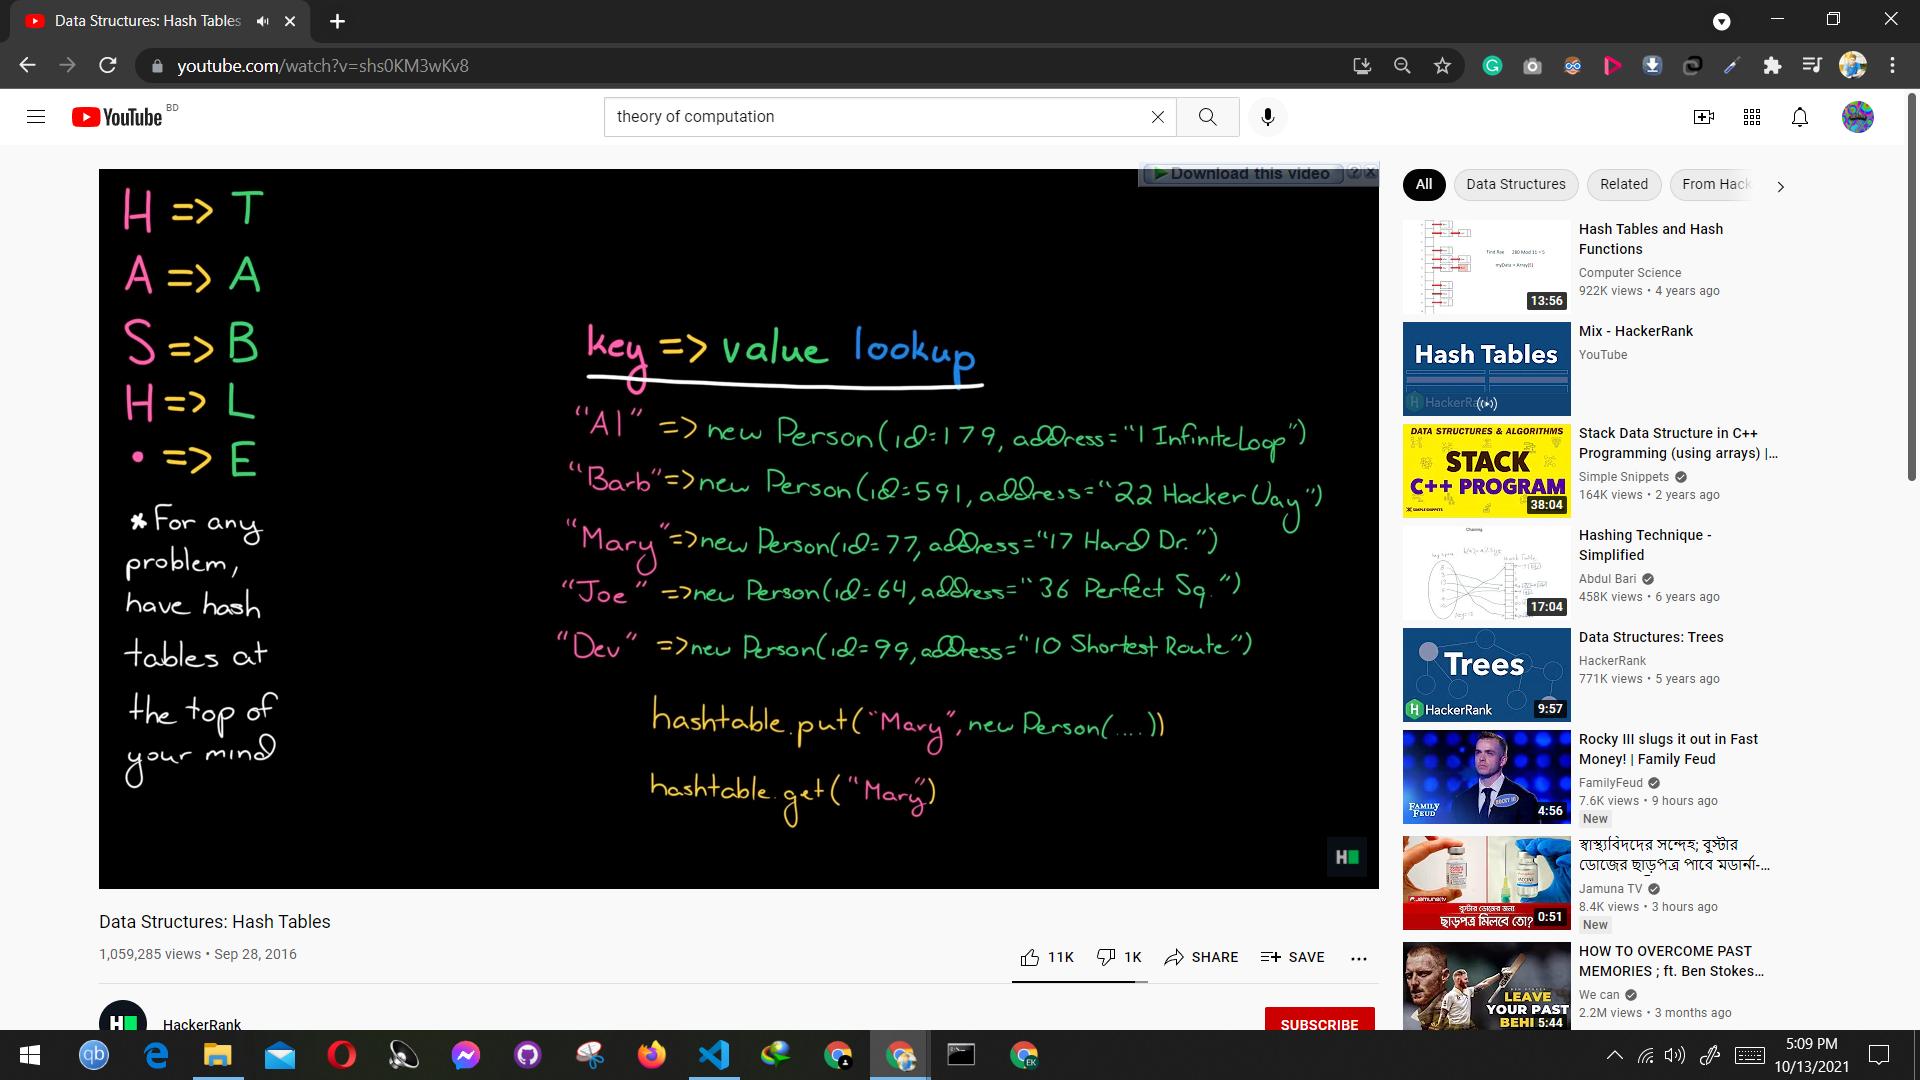 Data Structures: Hash Tables
youtube.com/watch?v=shs0KM3wKv8
YouTube BD
theory of computation
Download this video
H => T
A => A
S => B
H => L
• => E
*For any
problem,
have hash
tables at
the top of
your mind
key => value lookup
"Al" => new Person(id=179, address="1 InfiniteLoop")
"Barb" => new Person(id=591, address="22 Hacker Way")
"Mary" => new Person(id=77, address="17 Hard Dr.")
"Joe" => new Person(id=64, address="36 Perfect Sq.")
"Dev" => new Person(id=99, address="10 Shortest Route")
hashtable.put("Mary", new Person(....))
hashtable.get("Mary")
H
Data Structures: Hash Tables
1,059,285 views • Sep 28, 2016
11K 1K SHARE SAVE
HackerRank
SUBSCRIBE
All Data Structures Related From Hack
Find Rae 280 Mod 11 = 5
myData = Array(5)
13:56
Hash Tables and Hash
Functions
Computer Science
922K views • 4 years ago
Hash Tables
HackerRank
Mix - HackerRank
YouTube
DATA STRUCTURES & ALGORITHMS
STACK
C++ PROGRAM
SIMPLE SNIPPETS
38:04
Stack Data Structure in C++
Programming (using arrays) |...
Simple Snippets
164K views • 2 years ago
Chaining
17:04
Hashing Technique -
Simplified
Abdul Bari
458K views • 6 years ago
Trees
HackerRank
9:57
Data Structures: Trees
HackerRank
771K views • 5 years ago
FAMILY
FEUD
4:56
Rocky III slugs it out in Fast
Money! | Family Feud
FamilyFeud
7.6K views • 9 hours ago
New
Jamuna tv
বুস্টার ডোজের জন্য
ছাড়পত্র মিলবে তো?
0:51
স্বাস্থ্যবিদদের সন্দেহ; বুস্টার
ডোজের ছাড়পত্র পাবে মডার্না-...
Jamuna TV
8.4K views • 3 hours ago
New
LEAVE
YOUR PAST
BEHI
5:44
HOW TO OVERCOME PAST
MEMORIES ; ft. Ben Stokes...
We can
2.2M views • 3 months ago
qb
EK
5:09 PM
10/13/2021